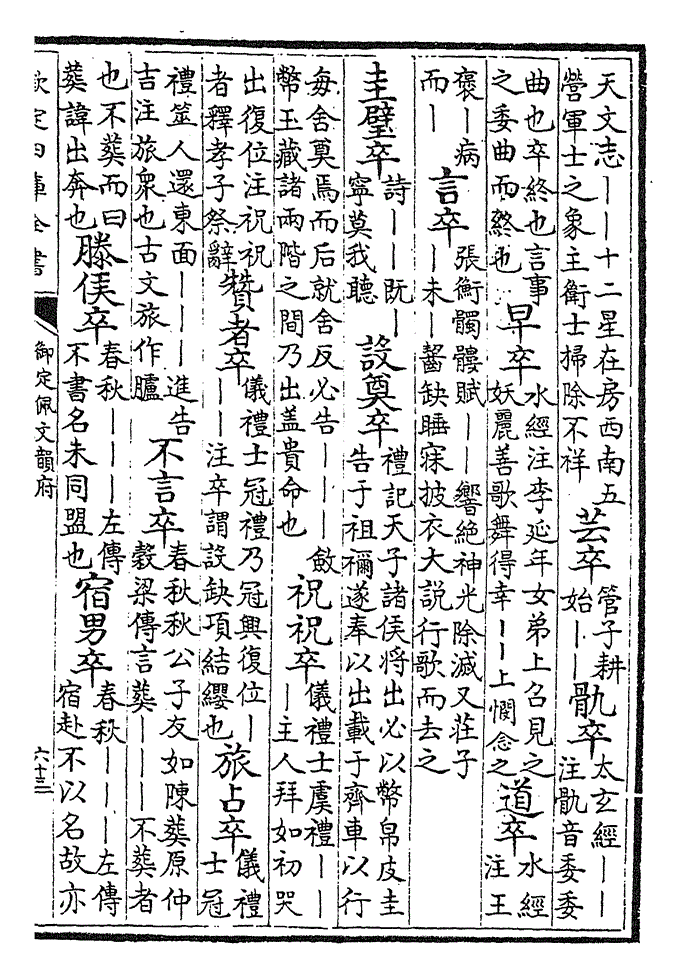 天文志｜｜十二星在房西南五營軍士之象主衛士掃除不祥 芸卒 管子耕始｜｜ 骩卒 太玄經｜｜注骩音委委
曲也卒終也言事之委曲而終也 早卒 水經注李延年女弟上召見之妖麗善歌舞得幸｜｜上憫念之 道卒 水經注王
褒｜病而｜ 言卒 張衡髑髏賦｜｜響絶神光除滅又莊子｜未｜齧缺睡寐披衣大說行歌而去之
圭璧卒 詩｜｜既｜寧莫我聽 設奠卒 禮記天子諸侯將出必以幣帛皮圭告于祖禰遂奉以出載于齊車以行
每舍奠焉而后就舍反必告｜｜｜斂幣玉藏諸兩階之間乃出盖貴命也 祝祝卒 儀禮士虞禮｜｜｜主人拜如初哭
出復位注祝祝者釋孝子祭辭 贊者卒 儀禮士冠禮乃冠興復位｜｜｜注卒謂設缺項結纓也 旅占卒 儀禮士冠
禮筮人還東面｜｜｜進告吉注旅衆也古文旅作臚 不言卒 春秋秋公子友如陳葬原仲榖梁傳言葬｜｜｜不葬者
也不葬而曰葬諱出奔也 滕侯卒 春秋｜｜｜左傳不書名未同盟也 宿男卒 春秋｜｜｜左傳宿赴不以名故亦
欽定四庫全書 御定佩文韻府 六十三